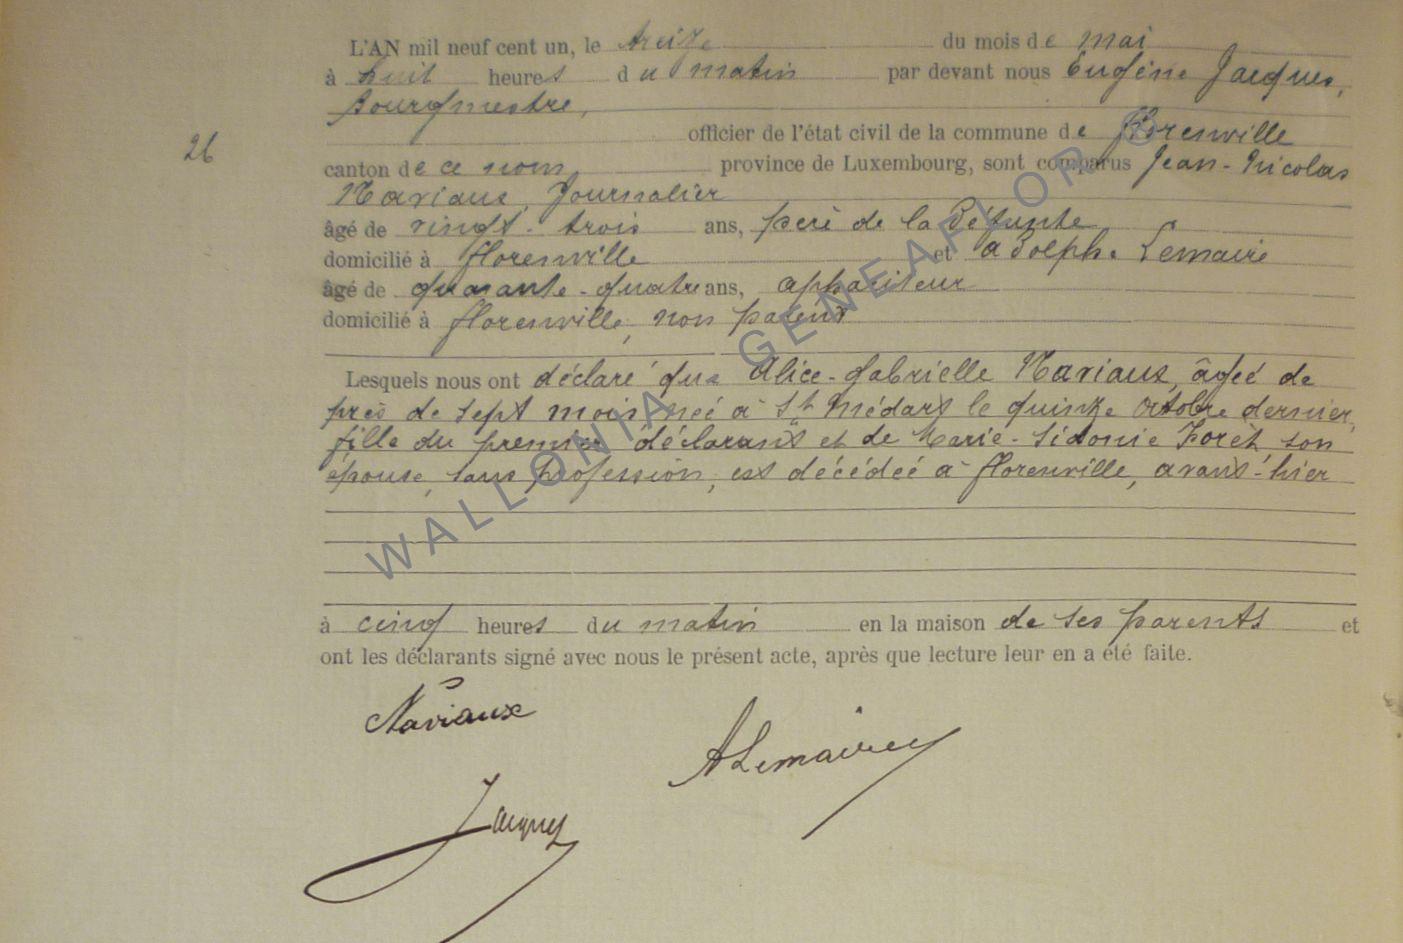 L'AN mil neuf cent un, le treize du mois de mai
à huit heures du matin par devant nous Eugène Jacques,
bourgmestre,
26 officier de l'état civil de la commune de florenville
canton de ce nom province de Luxembourg, sont comparus Jean-Nicolas
Naviaux, Journalier
âgé de vingt-trois ans, père de la défunte
domicilié à florenville et adolphe Lemaire
âgé de quarante-quatre ans, appariteur
domicilié à florenville, non parent
Lesquels nous ont déclaré que Alice-gabrielle Naviaux, âgée de
près de sept mois née à St Médard le quinze octobre dernier,
fille du premier déclarant et de Marie-Sidonie Forêt, son
épouse, sans profession, est décédée à florenville, avant-hier
à cinq heures du matin en la maison de ses parents et
ont les déclarants signé avec nous le présent acte, après que lecture leur en a été faite.
Naviaux
ALemaire
Jacques
WALLONIA GENEAFLOR ©